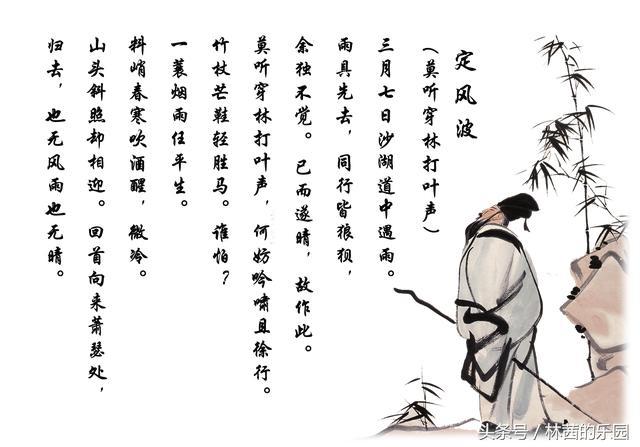 定风波
（莫听穿林打叶声）
三月七日沙湖道中遇雨。
雨具先去，同行皆狼狈，
余独不觉。已而遂晴，故作此。
莫听穿林打叶声，何妨吟啸且徐行。
竹杖芒鞋轻胜马。谁怕？
一蓑烟雨任平生。
料峭春寒吹酒醒，微冷。
山头斜照却相迎。回首向来萧瑟处，
归去，也无风雨也无晴。
头条号 / 林茜的乐园